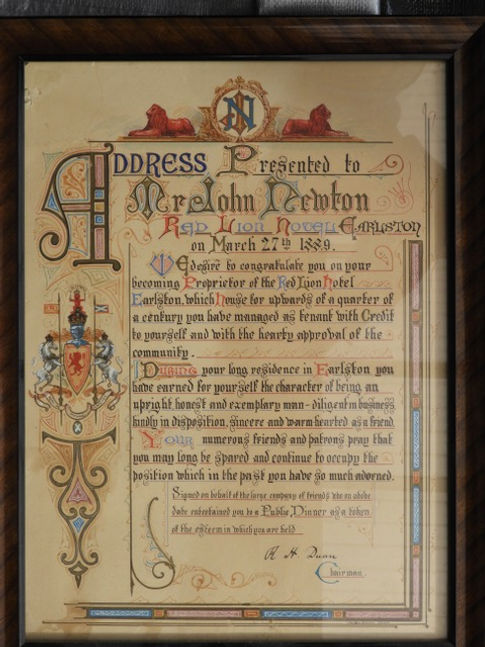 JN
ADDRESS Presented to
Mr John Newton
Red Lion Hotel Earlston
on March 27th 1889.
We desire to congratulate you on your
becoming Proprietor of the Red Lion Hotel
Earlston, which house for upwards of a quarter of
a century you have managed as tenant with Credit
to yourself and with the hearty approval of the
community.
During your long residence in Earlston you
have earned for yourself the character of being an
upright, honest and exemplary man - diligent in business,
kindly in disposition, sincere and warm hearted as a friend.
Your numerous friends and patrons pray that
you may long be spared and continue to occupy the
position which in the past you have so much adorned.
Signed on behalf of the large company of friends who on above
date entertained you to a Public Dinner as a token
of the esteem in which you are held
Chairman.